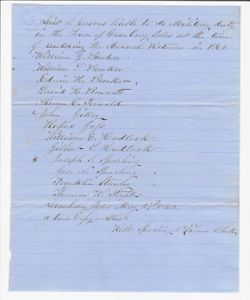 List of persons liable to do Military duty
in the Town of Cranberry Isles at the time
of rendering the Annual Returns in 1862
William G. Bunker
William E. Bunker
Edwin H. Bunker
David K. Bennett
Abram C. Fernald
John Gilley
Rufus Goss
William E. Hadlock
Gilbert T. Hadlock
Joseph S. Spurling
Geo. N. Spurling
Franklin Stanley
Thomas W. Stanley
Cranberry Isles May 1862
a true Copy Attest
Robt Spurling